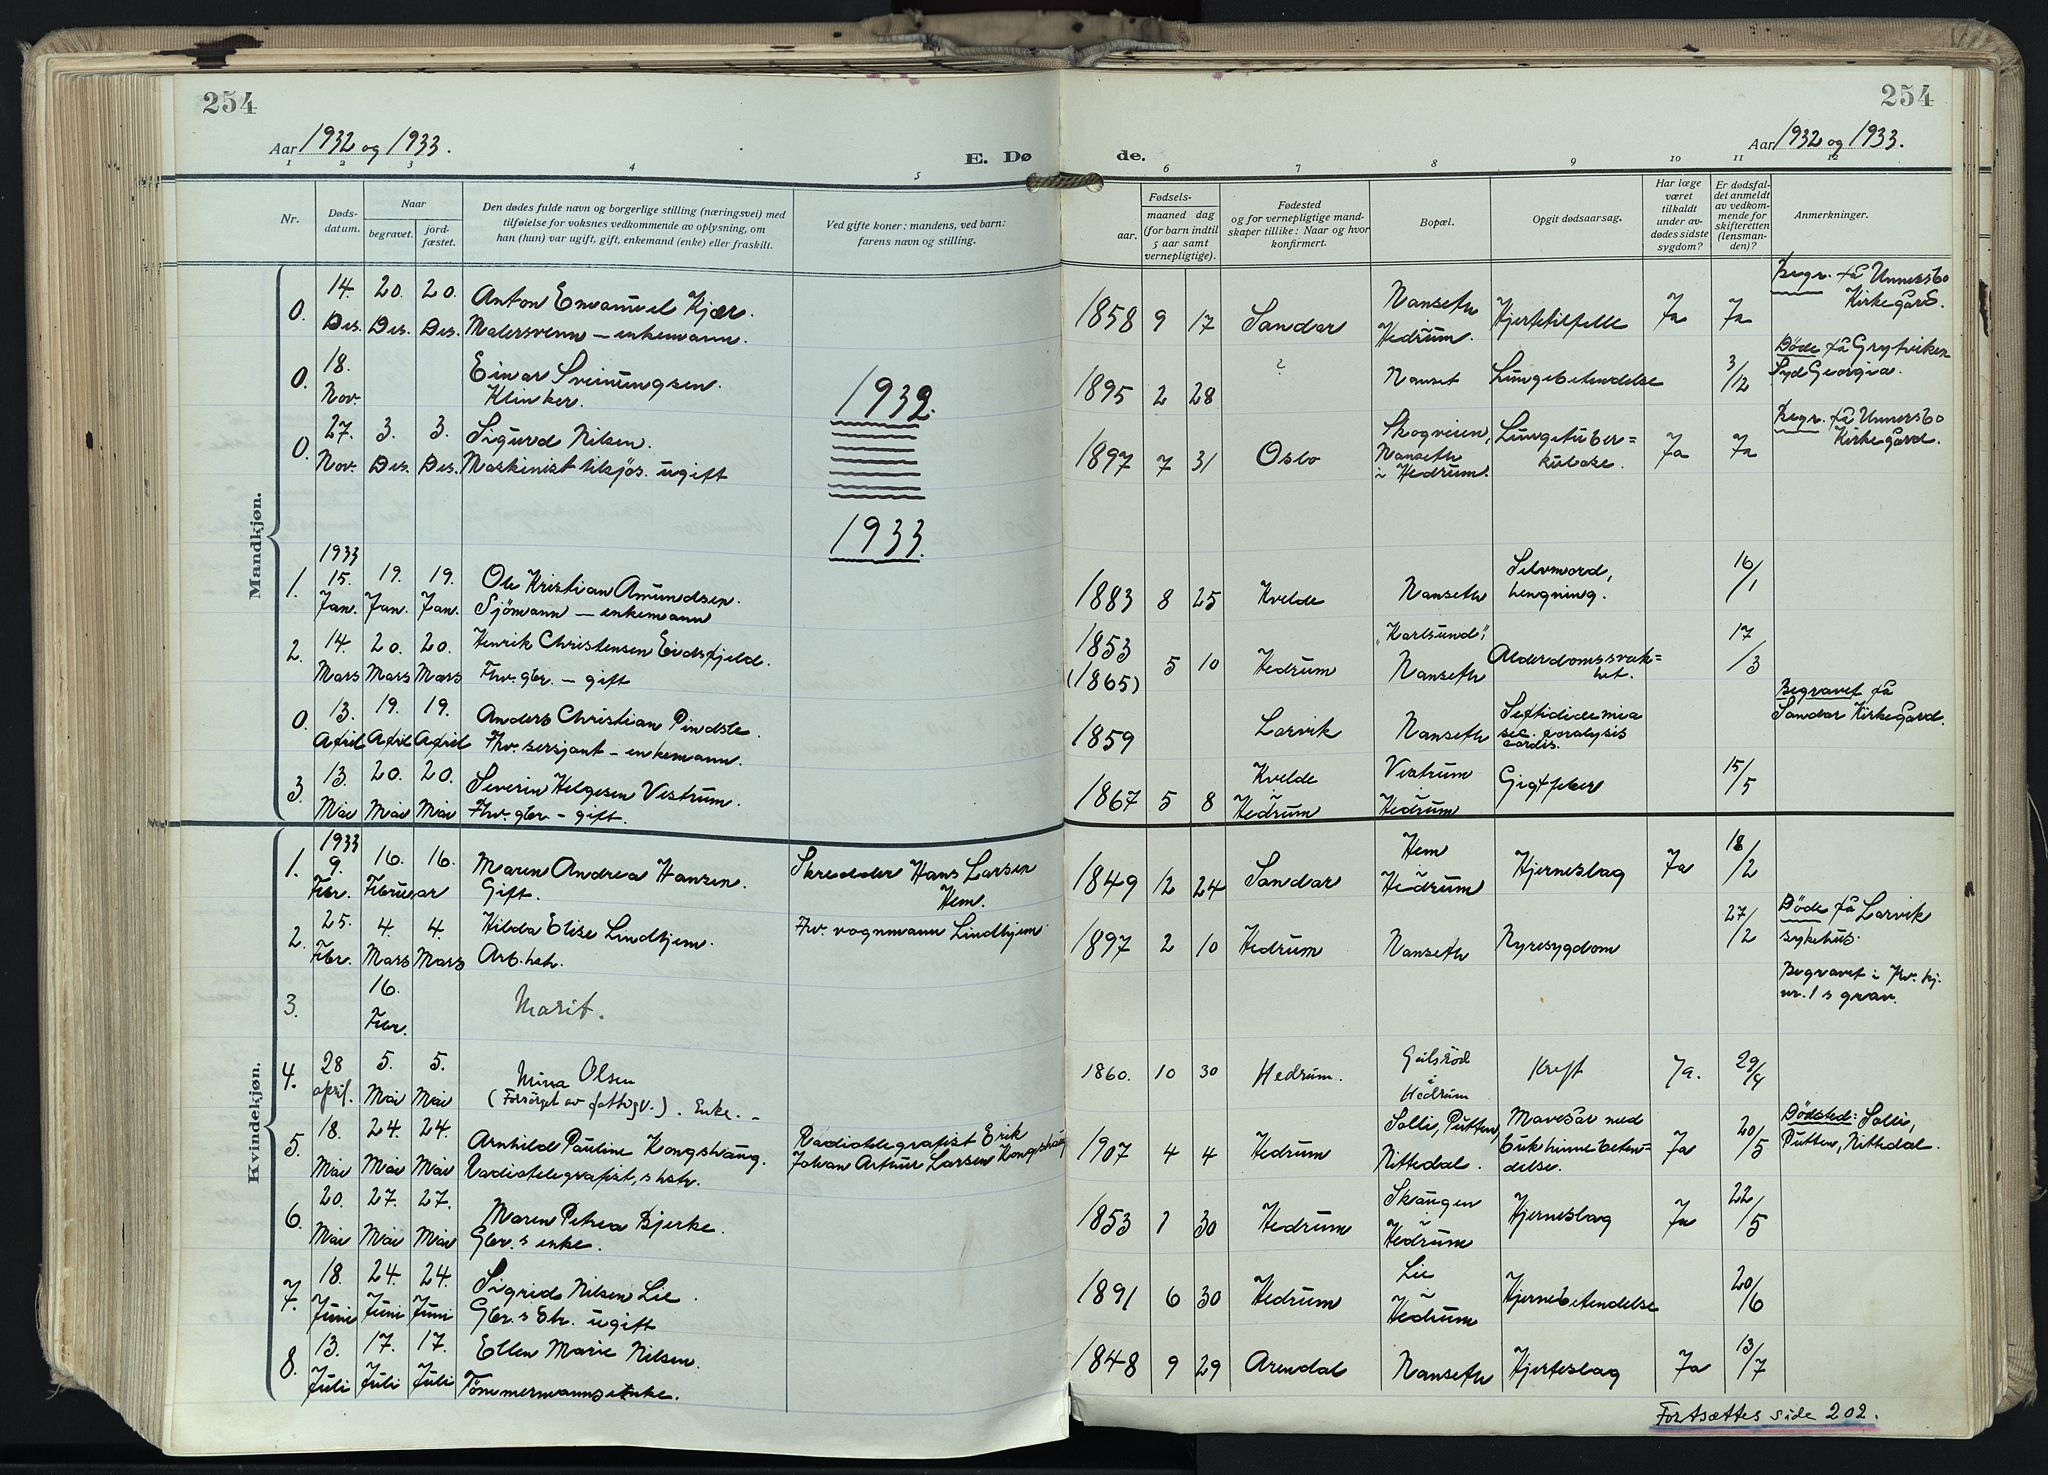 254
254
Aar 1932 og 1933.
E. Døde.
Aar 1932 og 1933.
1 2 3 4 5 6 7 8 9 10 11 12
Nr.
Døds-
datum.
Naar
begravet.
jord-
fæstet.
Den dødes fulde navn og borgerlige stilling (næringsvei) med
tilføielse for voksnes vedkommende av oplysning, om
han (hun) var ugift, gift, enkemand (enke) eller fraskilt.
Ved gifte koner: mandens, ved barn:
farens navn og stilling.
Fødsels-
aar.
maaned dag
(for barn indtil
5 aar samt
vernepligtige).
Fødested
og for vernepligtige mand-
skaper tillike: Naar og hvor
konfirmert.
Bopæl.
Opgit dødsaarsag.
Har læge
været
tilkaldt
under av-
dødes sidste
sygdom?
Er dødsfal-
det anmeldt
av vedkom-
mende for
skifteretten
(lensman-
den)?
Anmerkninger.
Mandkjøn.
0. 14. Des. 20. Des. 20. Des. Anton Emanuel Kjær.
Malersvenn – enkemann.
1858 9 17 Sandar Nanseth Hedrum. Hjertetilfelle Ja Ja Begr. på Unnersbo
Kirkegård.
0. 18. Nov. Einar Sveinungsen
Klinker.
1895 2 28 ? Nanset Lungebetendelse 3/12 Døde på Grytviken
Syd Georgia.
1932.
0. 27. Nov. 3. Des. 3. Des. Sigurd Nilsen.
Maskinist tilsjøs. ugift
1897 7 31 Oslo Skogveien, Nanseth i Hedrum. Lungetuber=
kulose. Ja Ja Begr. på Unnersbo
Kirkegård.
1933.
1933
1. 15. Jan. 19. Jan. 19. Jan. Ole Kristian Amundsen.
Sjömann – enkemann
1883 8 25 Kvelde Nanseth Selvmord,
hengning. 16/1
2. 14. Mars 20. Mars 20. Mars Henrik Christensen Eidsfjeld.
Fhv. gbr. – gift
1853
(1865) 5 10 Hedrum "Karlsund",
Nanseth Alderdomssvak=
het. 17/3
0. 13. April 19. April 19. April Anders Christian Pindsle.
Fhv. sersjant – enkemann.
1859 Larvik Nanseth
sec. paralysis
cordis. Begravet på
Sandar Kirkegård.
3. 13. Mai 20. Mai 20. Mai Severin Helgesen Vestrum.
Fhv. gbr – gift.
1867 5 8 Kvelde i Hedrum Vestrum Hedrum Gigtfeber 15/5
Kvindekjøn.
1933
1. 9. Febr. 16. Februar 16. Maren Andrea Hansen.
Gift.
Skredder Hans Larsen
Hem.
1849 12 24 Sandar Hem i Hedrum Hjerneslag Ja 18/2
2. 25. Febr. 4. Mars 4. Mars Hilda Elise Lindhjem.
Arb. hstr.
Fhv. vognmann Lindhjem
1897 2 10 Hedrum Nanseth Nyresygdom 27/2 Døde på Larvik
sykehus.
3. 16. Febr. Marit.
Begravet i Kv. kj.
nr. 1 s grav.
4. 28 april. 5. Mai 5. Mai Mina Olsen
(Forsørget av fattigv.). Enke. –
1860. 10 30 Hedrum. i Hedrum Kreft Ja. 29/4
5. 18. Mai 24. Mai 24. Mai Arnhild Pauline Kongshaug.
Radiotelegrafist, s hstr.
Radiotelegrafist Erik
Johan Arthur Larsen Kongshaug
1907 4 4 Hedrum Solli, Putten,
Nittedal. Mavesår med
bukhinnebeten-
delse. Ja 20/5 Dödsted: Solli,
Putten, Nittedal.
6. 20. Mai 27. Mai 27. Mai Maren Petrea Bjerke.
Gbr. s enke.
1853 1 30 Hedrum Skaugen i Hedrum Hjerneslag Ja 22/5
7. 18. Juni 24. Juni 24. Juni Sigrid Nilsen Lie.
Gbr. s dtr. ugift
1891 6 30 Hedrum Lie i Hedrum Hjernebetendelse 20/6
8. 13. Juli 17. Juli 17. Juli Ellen Marie Nilsen.
Tömmermannsenke.
1848 9 29 Arendal Nanseth Hjerteslag Ja 13/7
Fortsættes side 202.